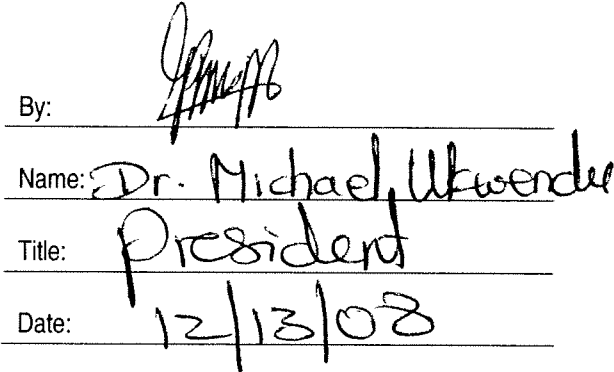 By:
Name: Dr. Michael Ukwendu
Title: President
Date: 12/13/08